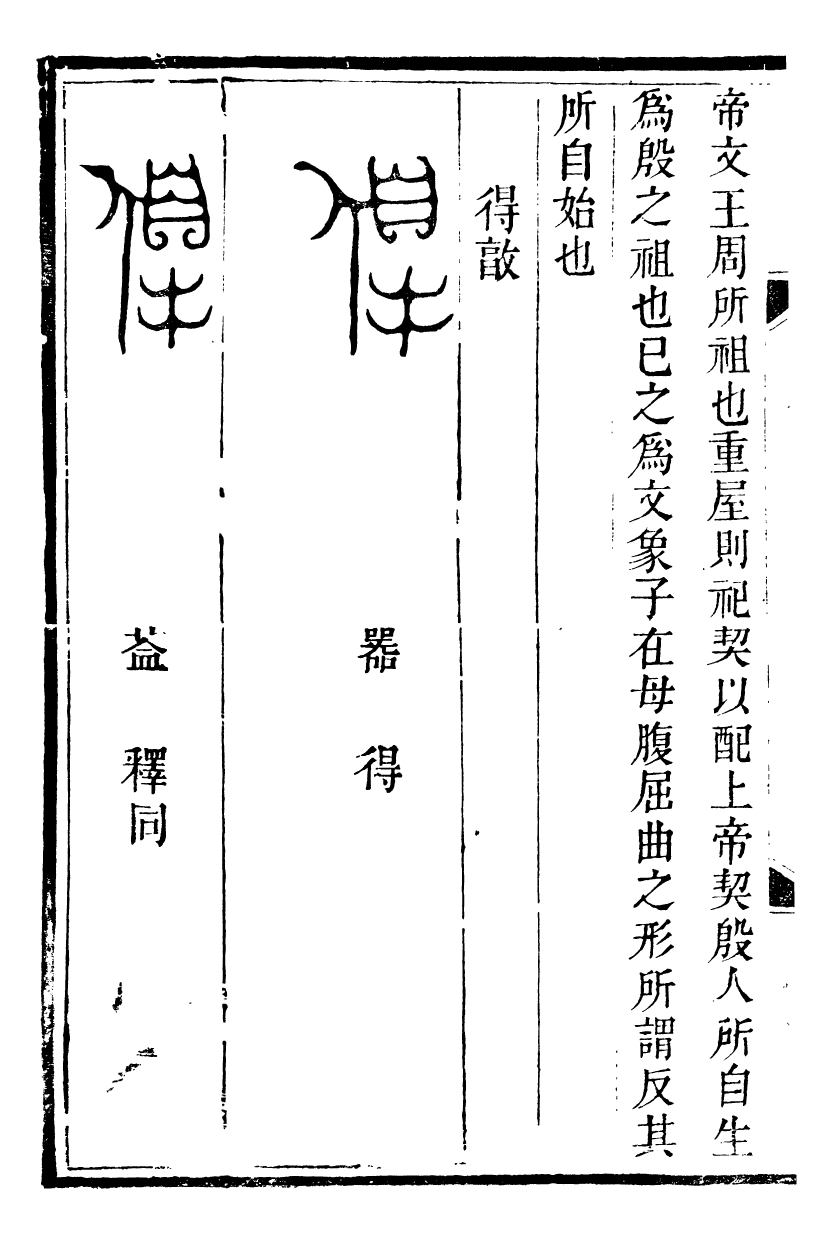 帝文王周所祖也重屋則祀契以配上帝契殷人所自生
為殷之祖也巳之為文象子在母腹屈曲之形所謂反其
所自始也
得敦
器　得
葢　釋同